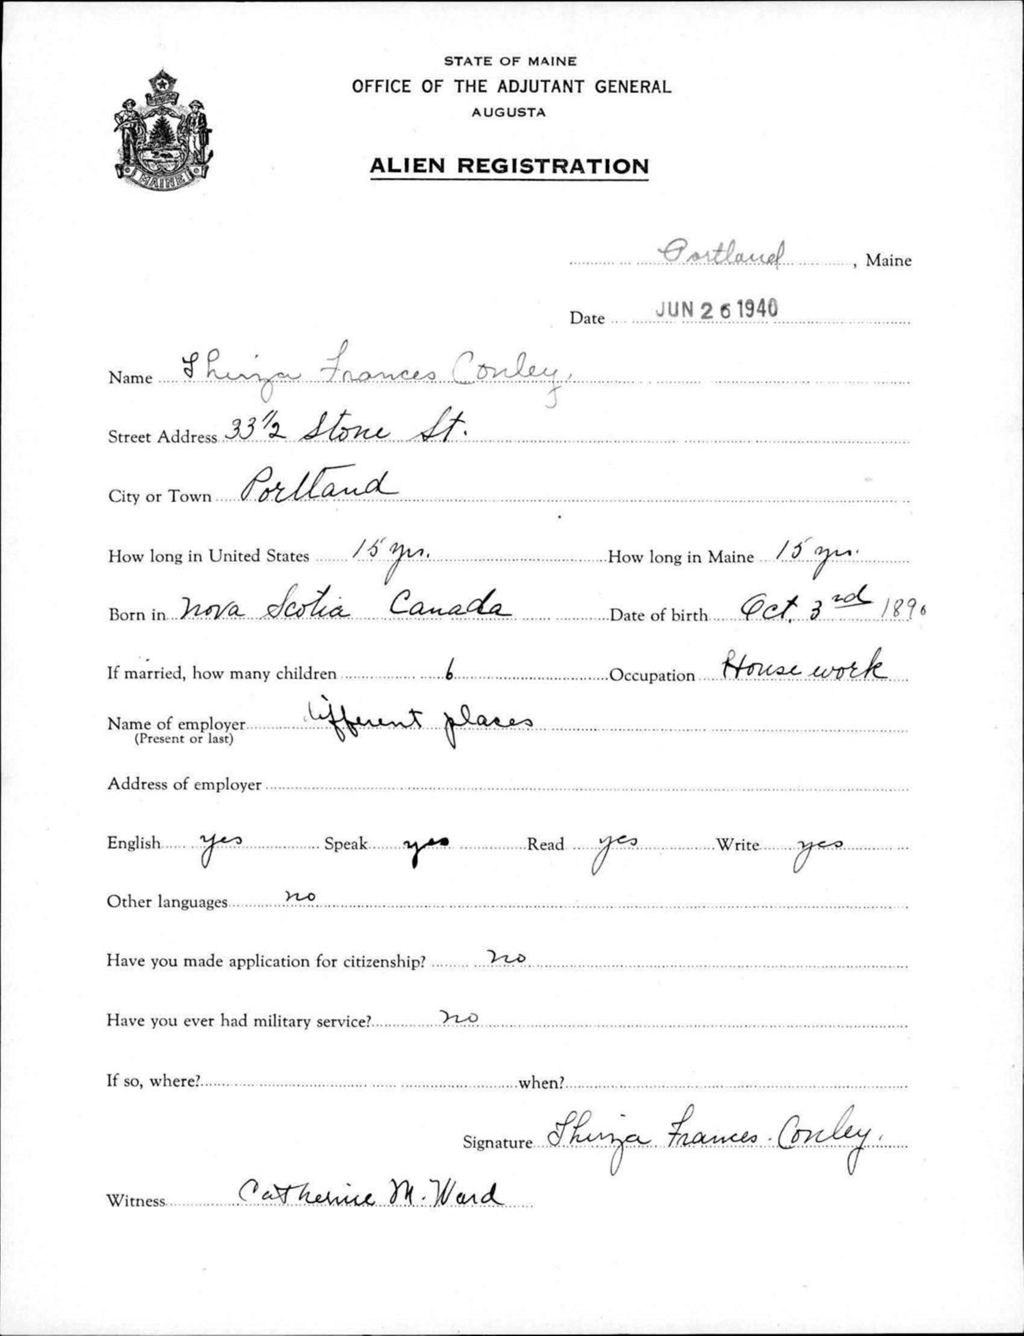 STATE OF MAINE
OFFICE OF THE ADJUTANT GENERAL
AUGUSTA
ALIEN REGISTRATION
MAINE
Portland, Maine
Date JUN 26 1940
Name Thirza Frances Conley,
Street Address 33 1/2 Stone St.
City or Town Portland
How long in United States 15 yrs. How long in Maine 15 yrs.
Born in Nova Scotia Canada Date of birth Oct. 3rd 1896
If married, how many children 6 Occupation House work
Name of employer different places
(Present or last)
Address of employer
English yes Speak yes Read yes Write yes
Other languages no
Have you made application for citizenship? no
Have you ever had military service? no
If so, where? when?
Signature Thirza Frances Conley.
Witness Catherine M. Ward